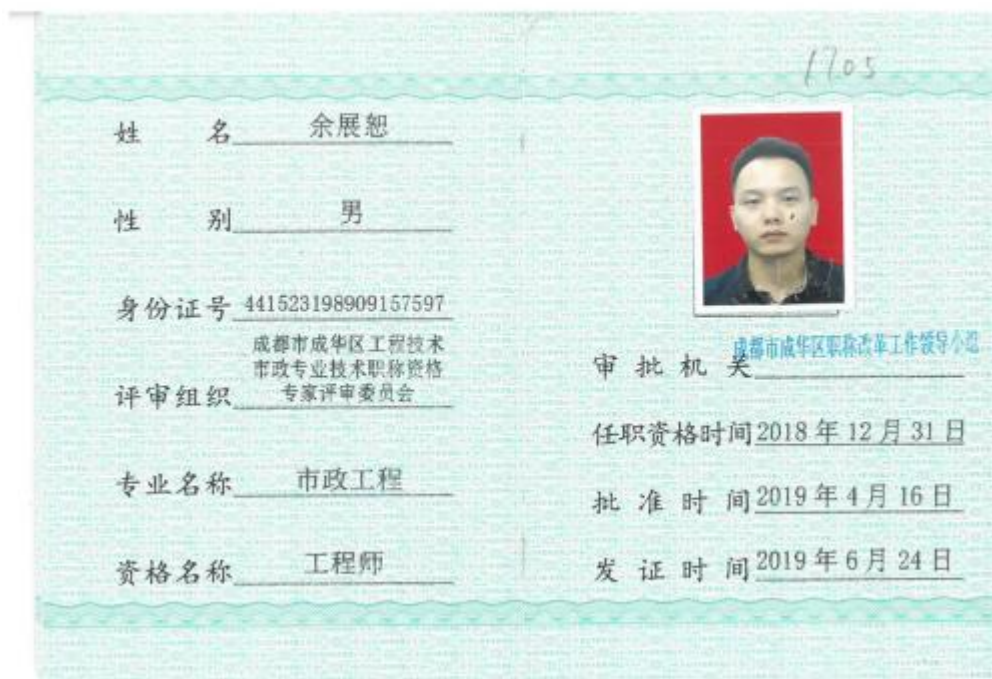 1705
姓名 余展恕
性别 男
身份证号 441523198909157597
评审组织 成都市成华区工程技术
市政专业技术职称资格
专家评审委员会
专业名称 市政工程
资格名称 工程师
审批机关 成都市成华区职称改革工作领导小组
任职资格时间 2018年12月31日
批准时间 2019年4月16日
发证时间 2019年6月24日